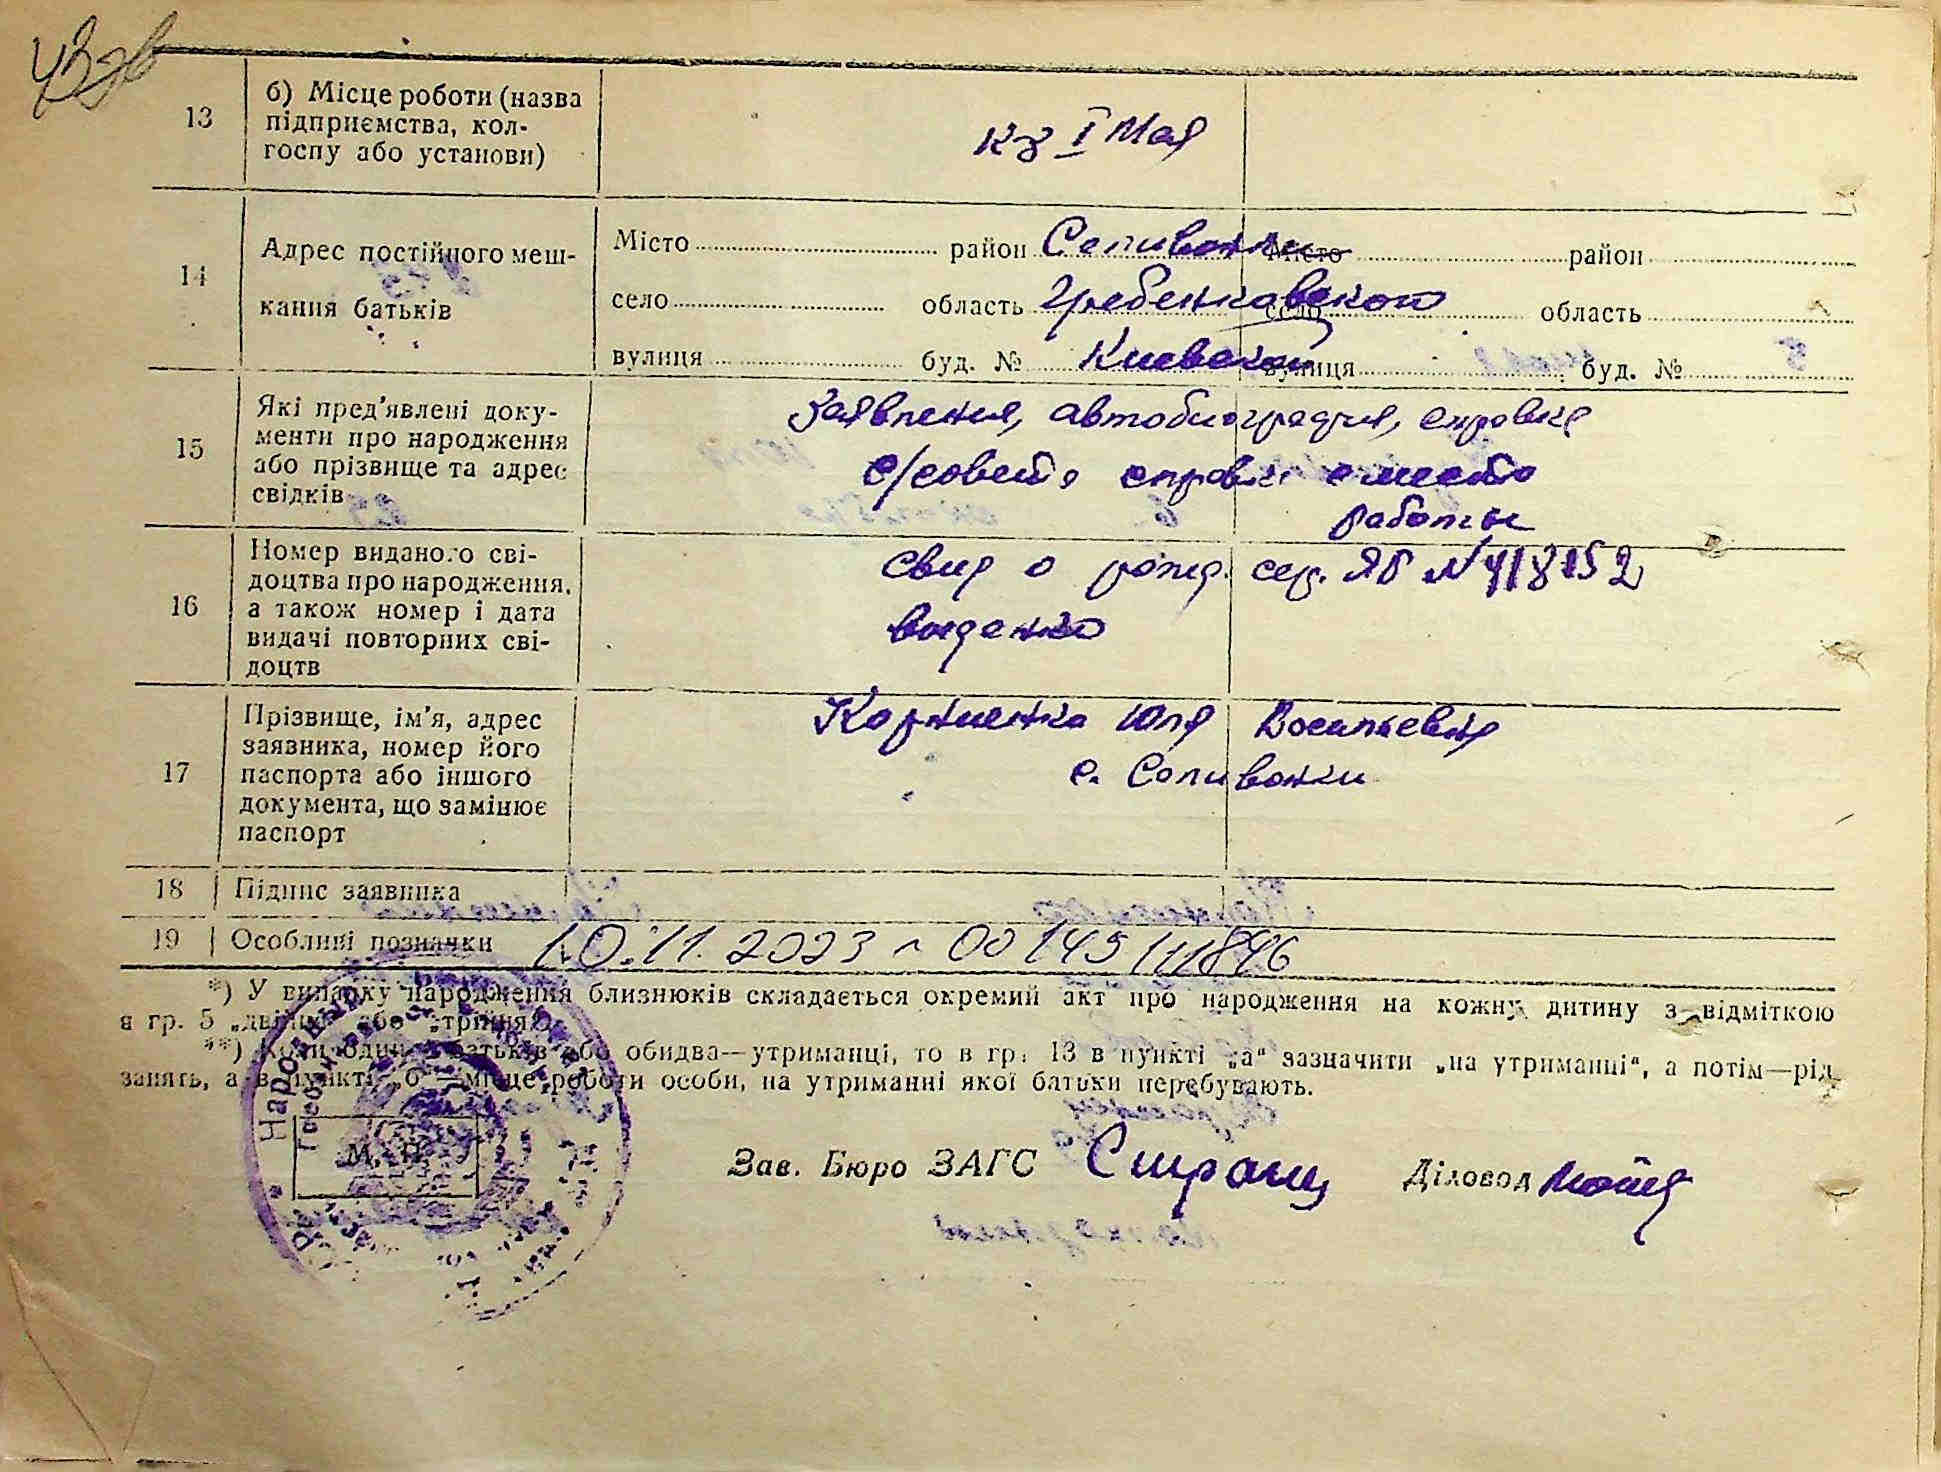 13
б) Місце роботи (назва
підприємства, кол-
госпу або установи)
кз І Мая
14
Адрес постійного меш-
кання батьків
Місто район Селивонки Місто район
село область Гребенковского село область
вулиця буд. № Киевской вулиця буд. №
15
Які пред'явлені доку-
менти про народження
або прізвище та адрес
свідків
Заявления, автобиография, справка
с/совета справка с места
работы
16
Номер виданого сві-
доцтва про народження,
а також номер і дата
видачі повторних сві-
доцтв
свид о рожд. сер. ЯБ №
выденко
17
Прізвище, ім'я, адрес
заявника, номер його
паспорта або іншого
документа, що замінює
паспорт
Корниенко Юля Васильевна
с. Селивонки
18 Підпис заявника
19 Особливі позначки 10.11.2023 00149111846
*) У випадку народження близнюків складається окремий акт про народження на кожну дитину з відміткою
в гр. 5 „двійня“ або „трійня“.
**) Коли один з батьків або обидва—утриманці, то в гр. 13 в пункті „а“ зазначити „на утриманні“, а потім—рід
занять, а в пункті „б“—місце роботи особи, на утриманні якої батьки перебувають.
М. П.
Зав. Бюро ЗАГС Діловод